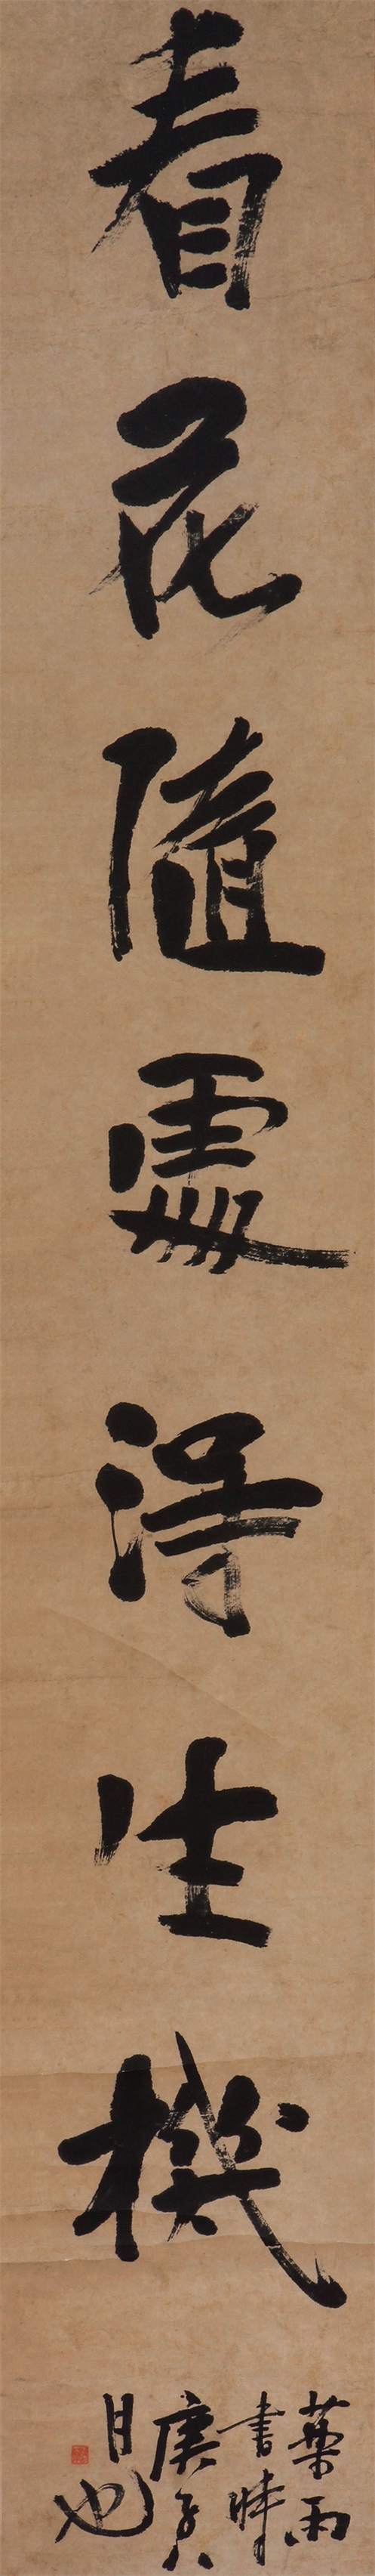 看花隨處得生機
藥雨
書時
庚
月也